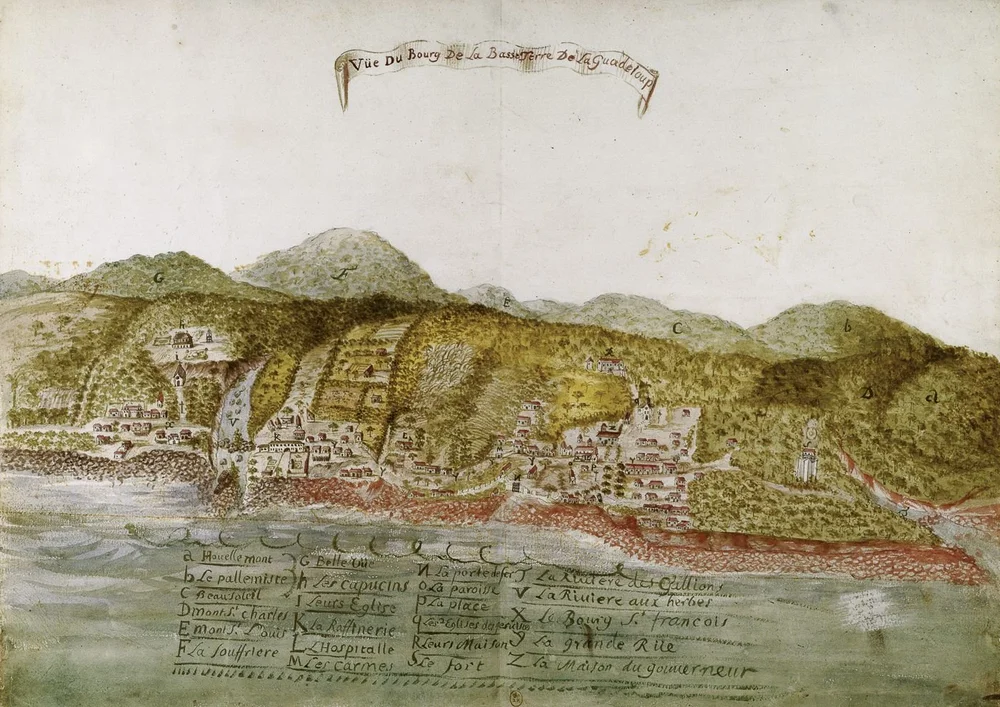 Vüe Du Bourg De La Basse Terre De La Guadeloup
G
F
E
C
b
D
a
V
a Houelle mont
b Le pallemiste
C Beausoleil
D mont St charles
E mont St Louis
F La Souffriere
G Belle Vüe
h Les Capucins
I Leurs Eglise
K La Raffinerie
L L'Hospitalle
M Les Carmes
N La porte de fer
O La paroisse
P La place
q Les Eglises des
R Leurs Maison
S Le fort
T La Riviere des Gallions
V La Riviere aux herbes
X Le Bourg St francois
y La grande Rüe
Z la Maison du gouverneur